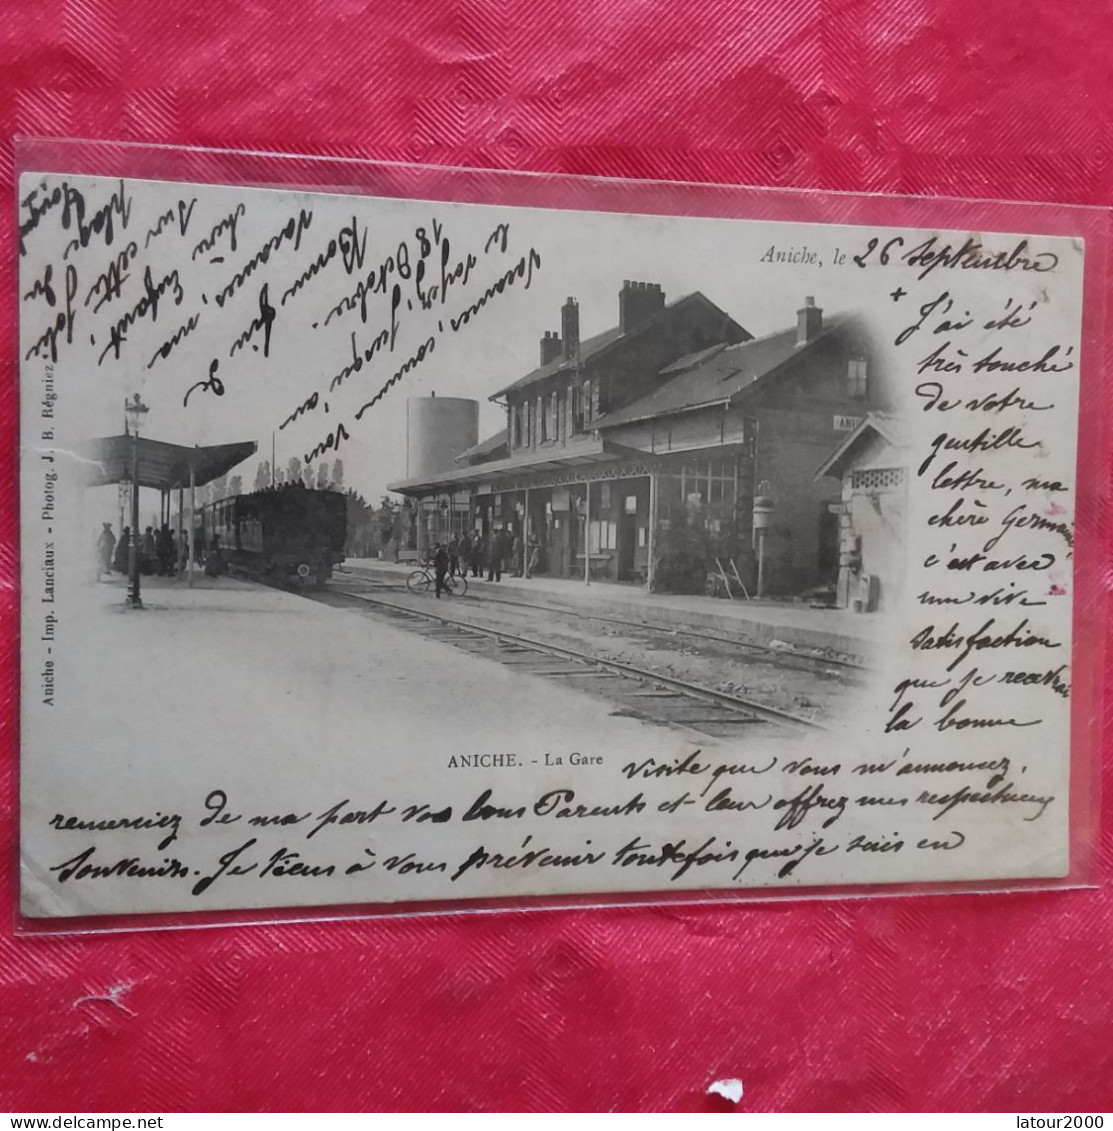 Aniche, le 26 septembre
+ J'ai été
très touché
de votre
gentille
lettre, ma
chère Germaine,
c'est avec
une vive
satisfaction
que je recevrai
la bonne
visite que vous m'annoncez,
remerciez de ma part vos bons Parents et leur offrez mes respectueux
Souvenirs. Je tiens à vous prévenir toutefois que je suis en
vacances, comme vous
le voyez, jusqu'au
18 Octobre.
Bonne fin de
vacances, ma
chère Enfant,
sur cette jolie
plage du
ANICHE. - La Gare
Aniche - Imp. Lanciaux - Photog. J. B. Régniez
ANI
latour2000